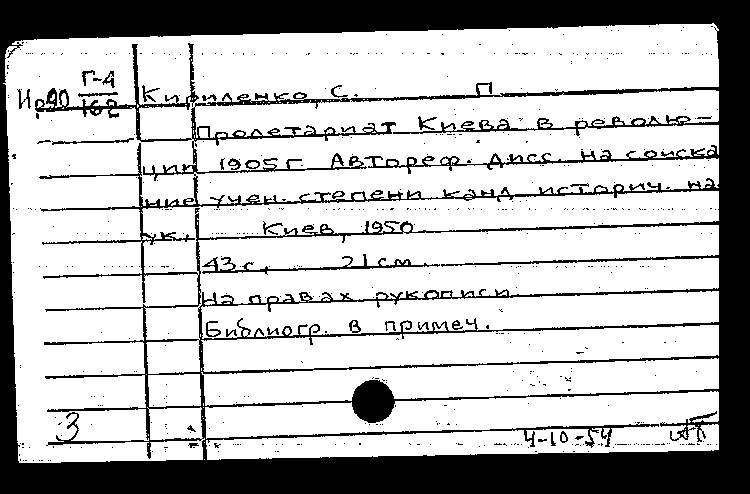 Г-4
162
Кириленко, С. П
Пролетариат Киева в револю-
ции 1905 г Автореф. дисс. на соиска
ние учен. степени канд историч. на
ук. Киев, 1950.
43 с. 21 см.
На правах рукописи
Библиогр. в примеч.
3
4-10-54